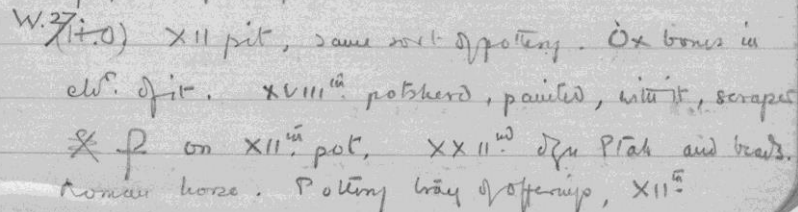 W.27 XII pit, same sort of pottery. Ox bones in
of it. XVIIIth potsherd, painted, with it, scraper
on XIIth pot, XXIInd Ptah and beads.
Roman horse. Pottery tray of offerings, XIIth